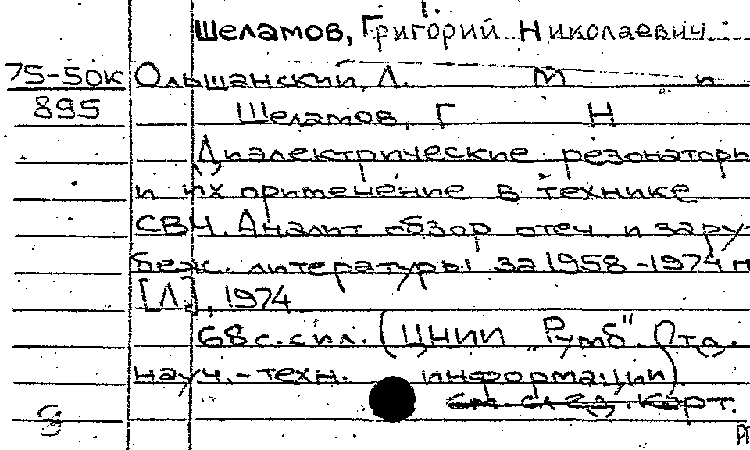 1.
Шеламов, Григорий Николаевич
75-50к Ольшанский, Л. М и
895 Шеламов, Г Н
Диэлектрические резонаторы
и их применение в технике
СВЧ. Аналит обзор отеч. и зару-
беж. литературы за 1958-1974 гг
[Л.], 1974
68 с. с ил. (ЦНИИ „Румб". Отд.
науч.-техн. информации)
См. след. карт.